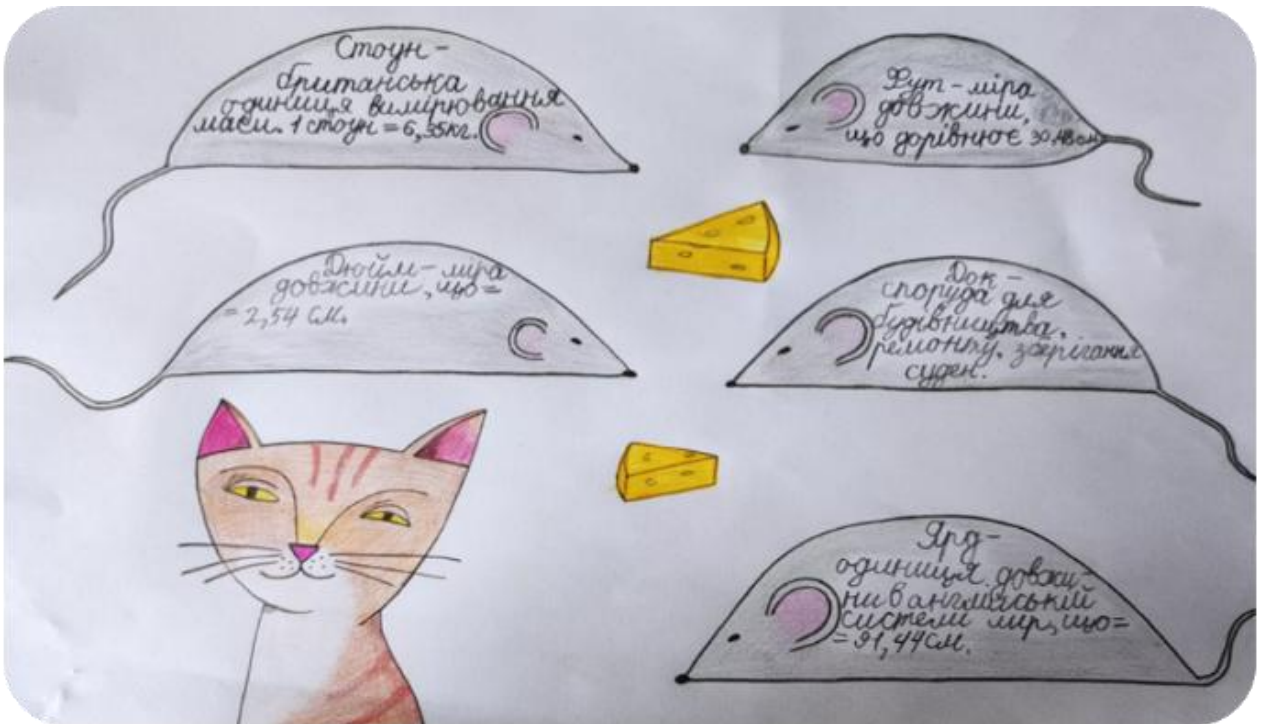 Стоун-
британська
одиниця вимірювання
маси. 1 стоун = 6,35кг.
Фут - міра
довжини,
що дорівнює 30.48 см
Дюйм - міра
довжини, що =
= 2,54 см.
Док -
споруда для
будівництва,
ремонту, зберігання
суден.
Ярд-
одиниця довжи-
ни в англійській
системі мір, що =
= 91,44см.